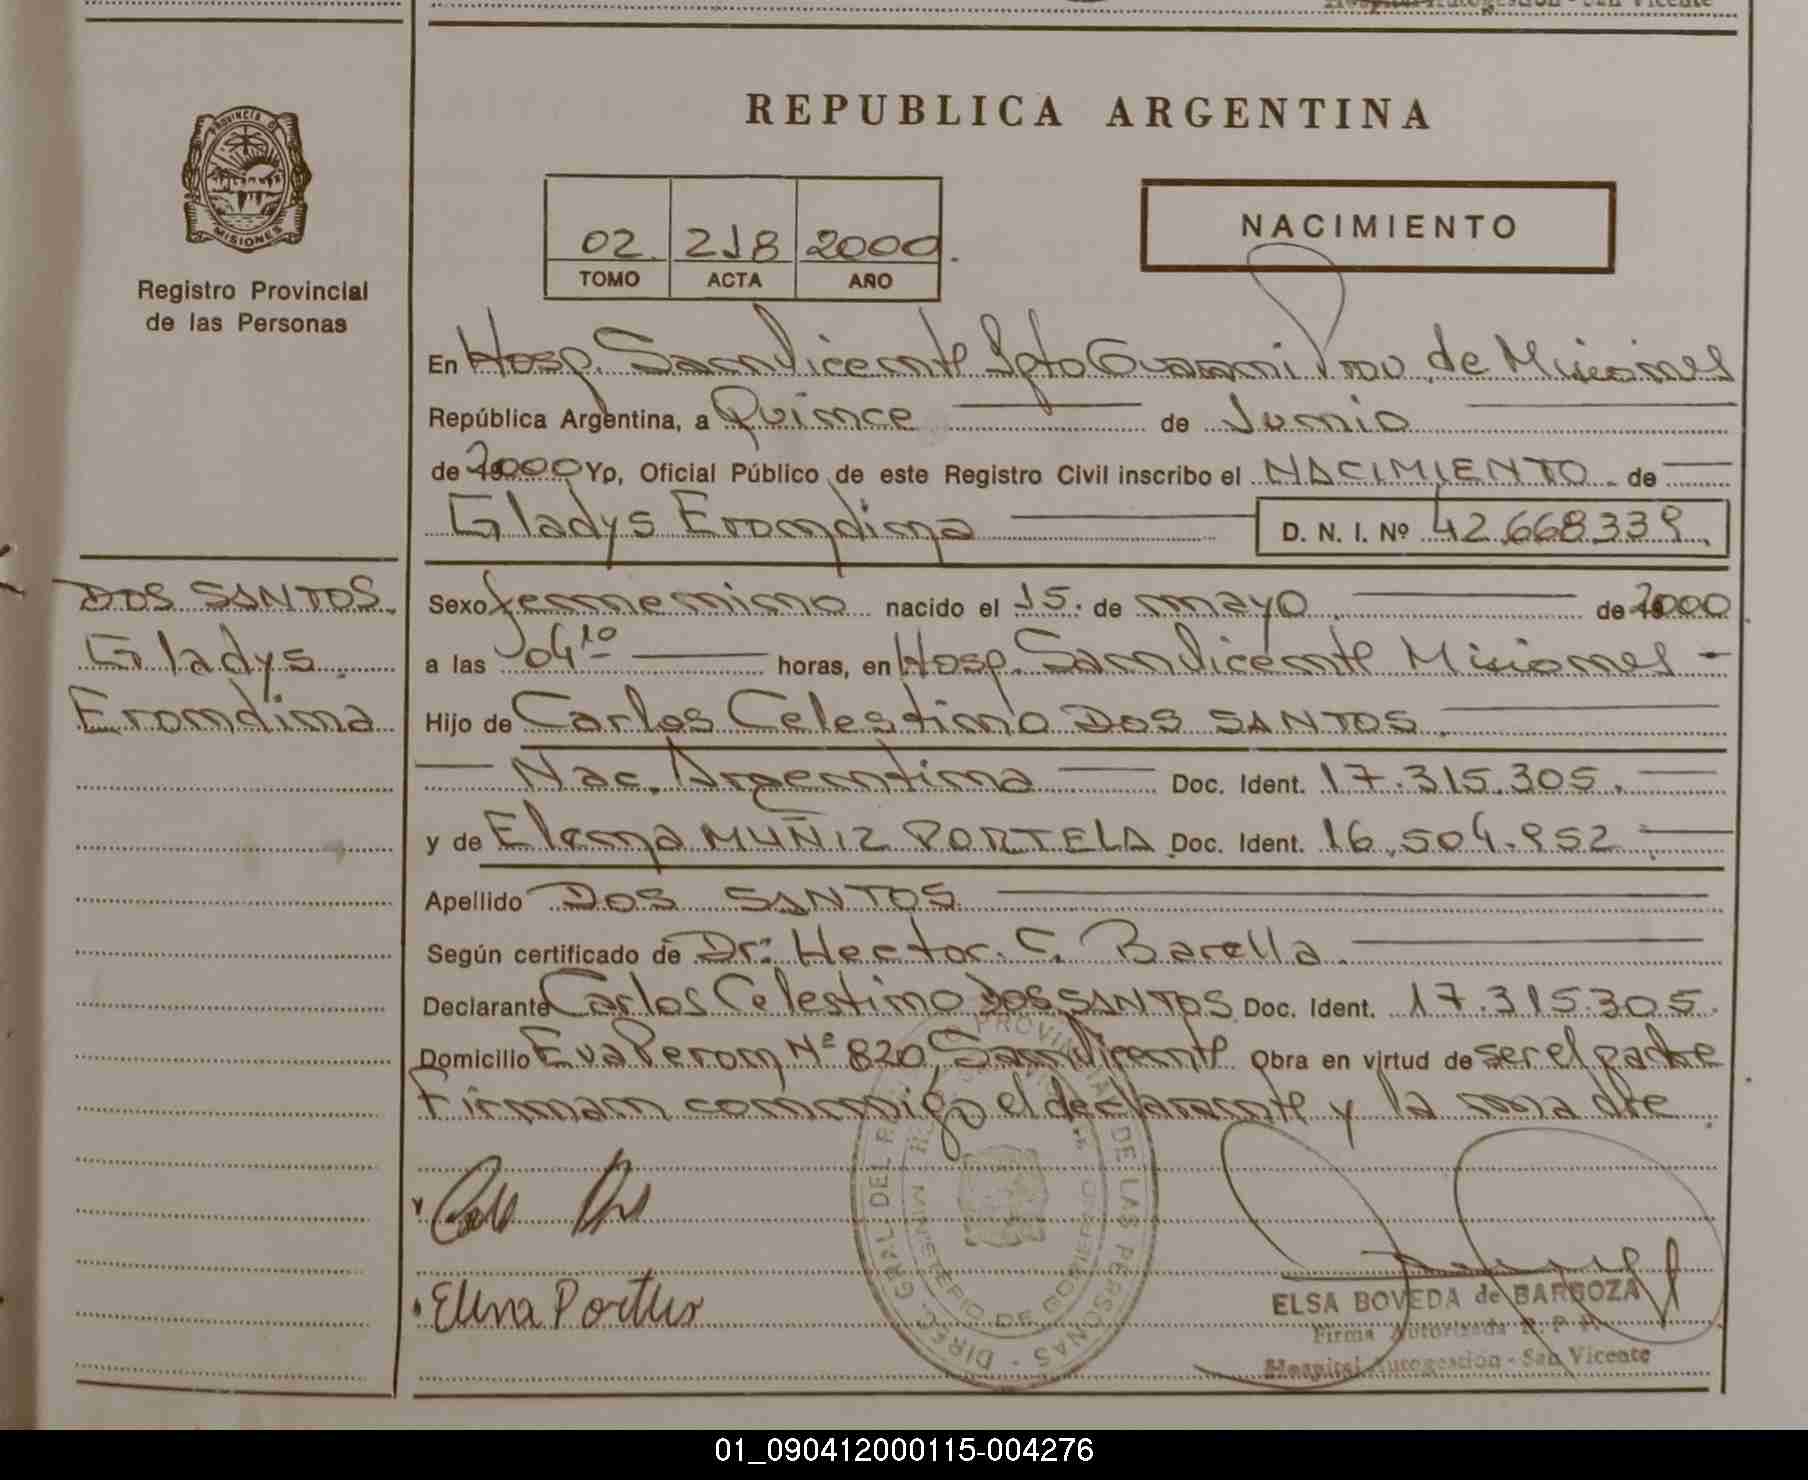 Hospital Autogestion - San Vicente
PROVINCIA D
MISIONES
Registro Provincial
de las Personas
REPUBLICA ARGENTINA
02 218 2000
TOMO ACTA AÑO
NACIMIENTO
En Hosp. San Vicente Dpto Guarani Prov. de Misiones
República Argentina, a Quince de Junio
de 2000 Yo, Oficial Público de este Registro Civil inscribo el NACIMIENTO de
Gladys Erondina D. N. I. Nº 42.668.339
DOS SANTOS
Gladys
Erondina
Sexo femenino nacido el 15 de mayo de 2000
a las 04¹⁰ horas, en Hosp. San Vicente Misiones -
Hijo de Carlos Celestino DOS SANTOS
Nac. Argentina Doc. Ident. 17.315.305.
y de Elena MUÑIZ PORTELA Doc. Ident. 16.504.952
Apellido DOS SANTOS
Según certificado de Dr: Hector. C. Barella.
Declarante Carlos Celestino DOS SANTOS Doc. Ident. 17.315.305.
Domicilio Eva Peron Nº 820, San Vicente Obra en virtud de ser el padre
Firman conmigo el declarante y la madre.
DIREC. GRAL DEL PROVINCIAL DE LAS PERSONAS
MINISTERIO DE GOBIERNO
Elena
ELSA BOVEDA de BARBOZA
Firma Autorizada R. P. P.
Hospital Autogestion - San Vicente
01_090412000115-004276